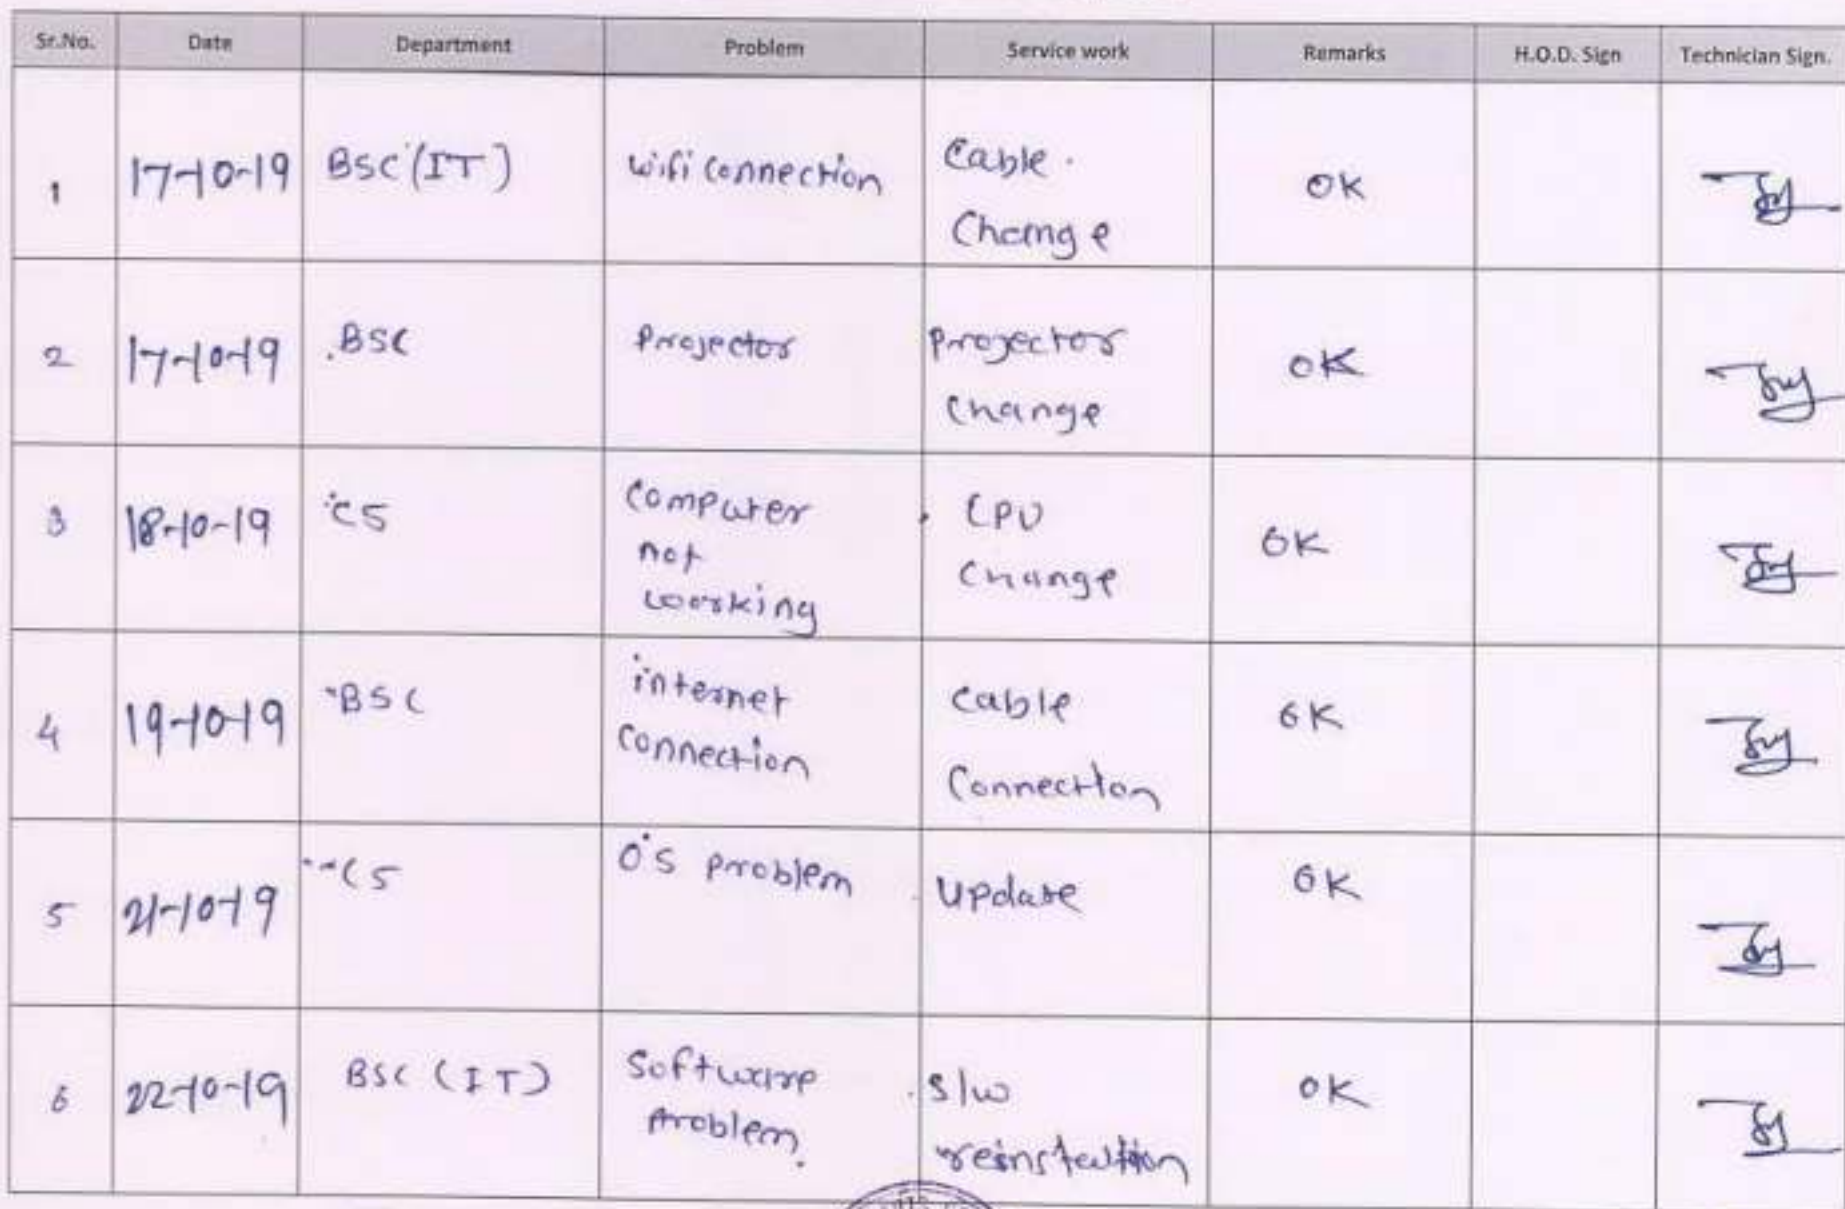 Sr.No. Date Department Problem Service work Remarks H.O.D. Sign Technician Sign.
1 17-10-19 BSC (IT) wifi connection Cable Change OK
2 17-10-19 BSC Projector Projector Change OK
3 18-10-19 CS Computer not working CPU Change OK
4 19-10-19 BSC internet connection Cable Connection OK
5 21-10-19 CS O's problem Update OK
6 22-10-19 BSC (IT) Software Problem. S/w